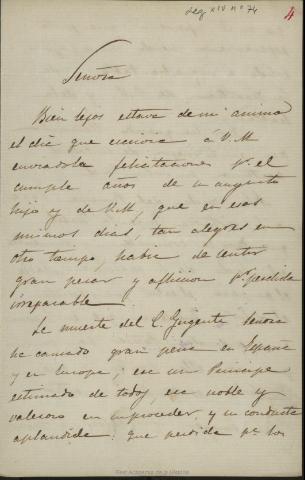 Leg XIV nº 74
4
Señora
Bien lejos estava de mi animo
el dia que escrivia á V.M
enviandola felicitaciones pr. el
cumple años de su augusto
hijo y de V.M, que en esos
mismos dias, tan alegres en
otro tiempo, habia de sentir
gran pesar y afliccion pr. perdida
irreparable.
La muerte del C. Gregente Señora
ha causado gran pena en España
y en Europa; era un Principe
estimado de todos, era noble y
valeroso en su proceder, y su conducta
aplaudida: que perdida pa. los
Real Academia de la Historia